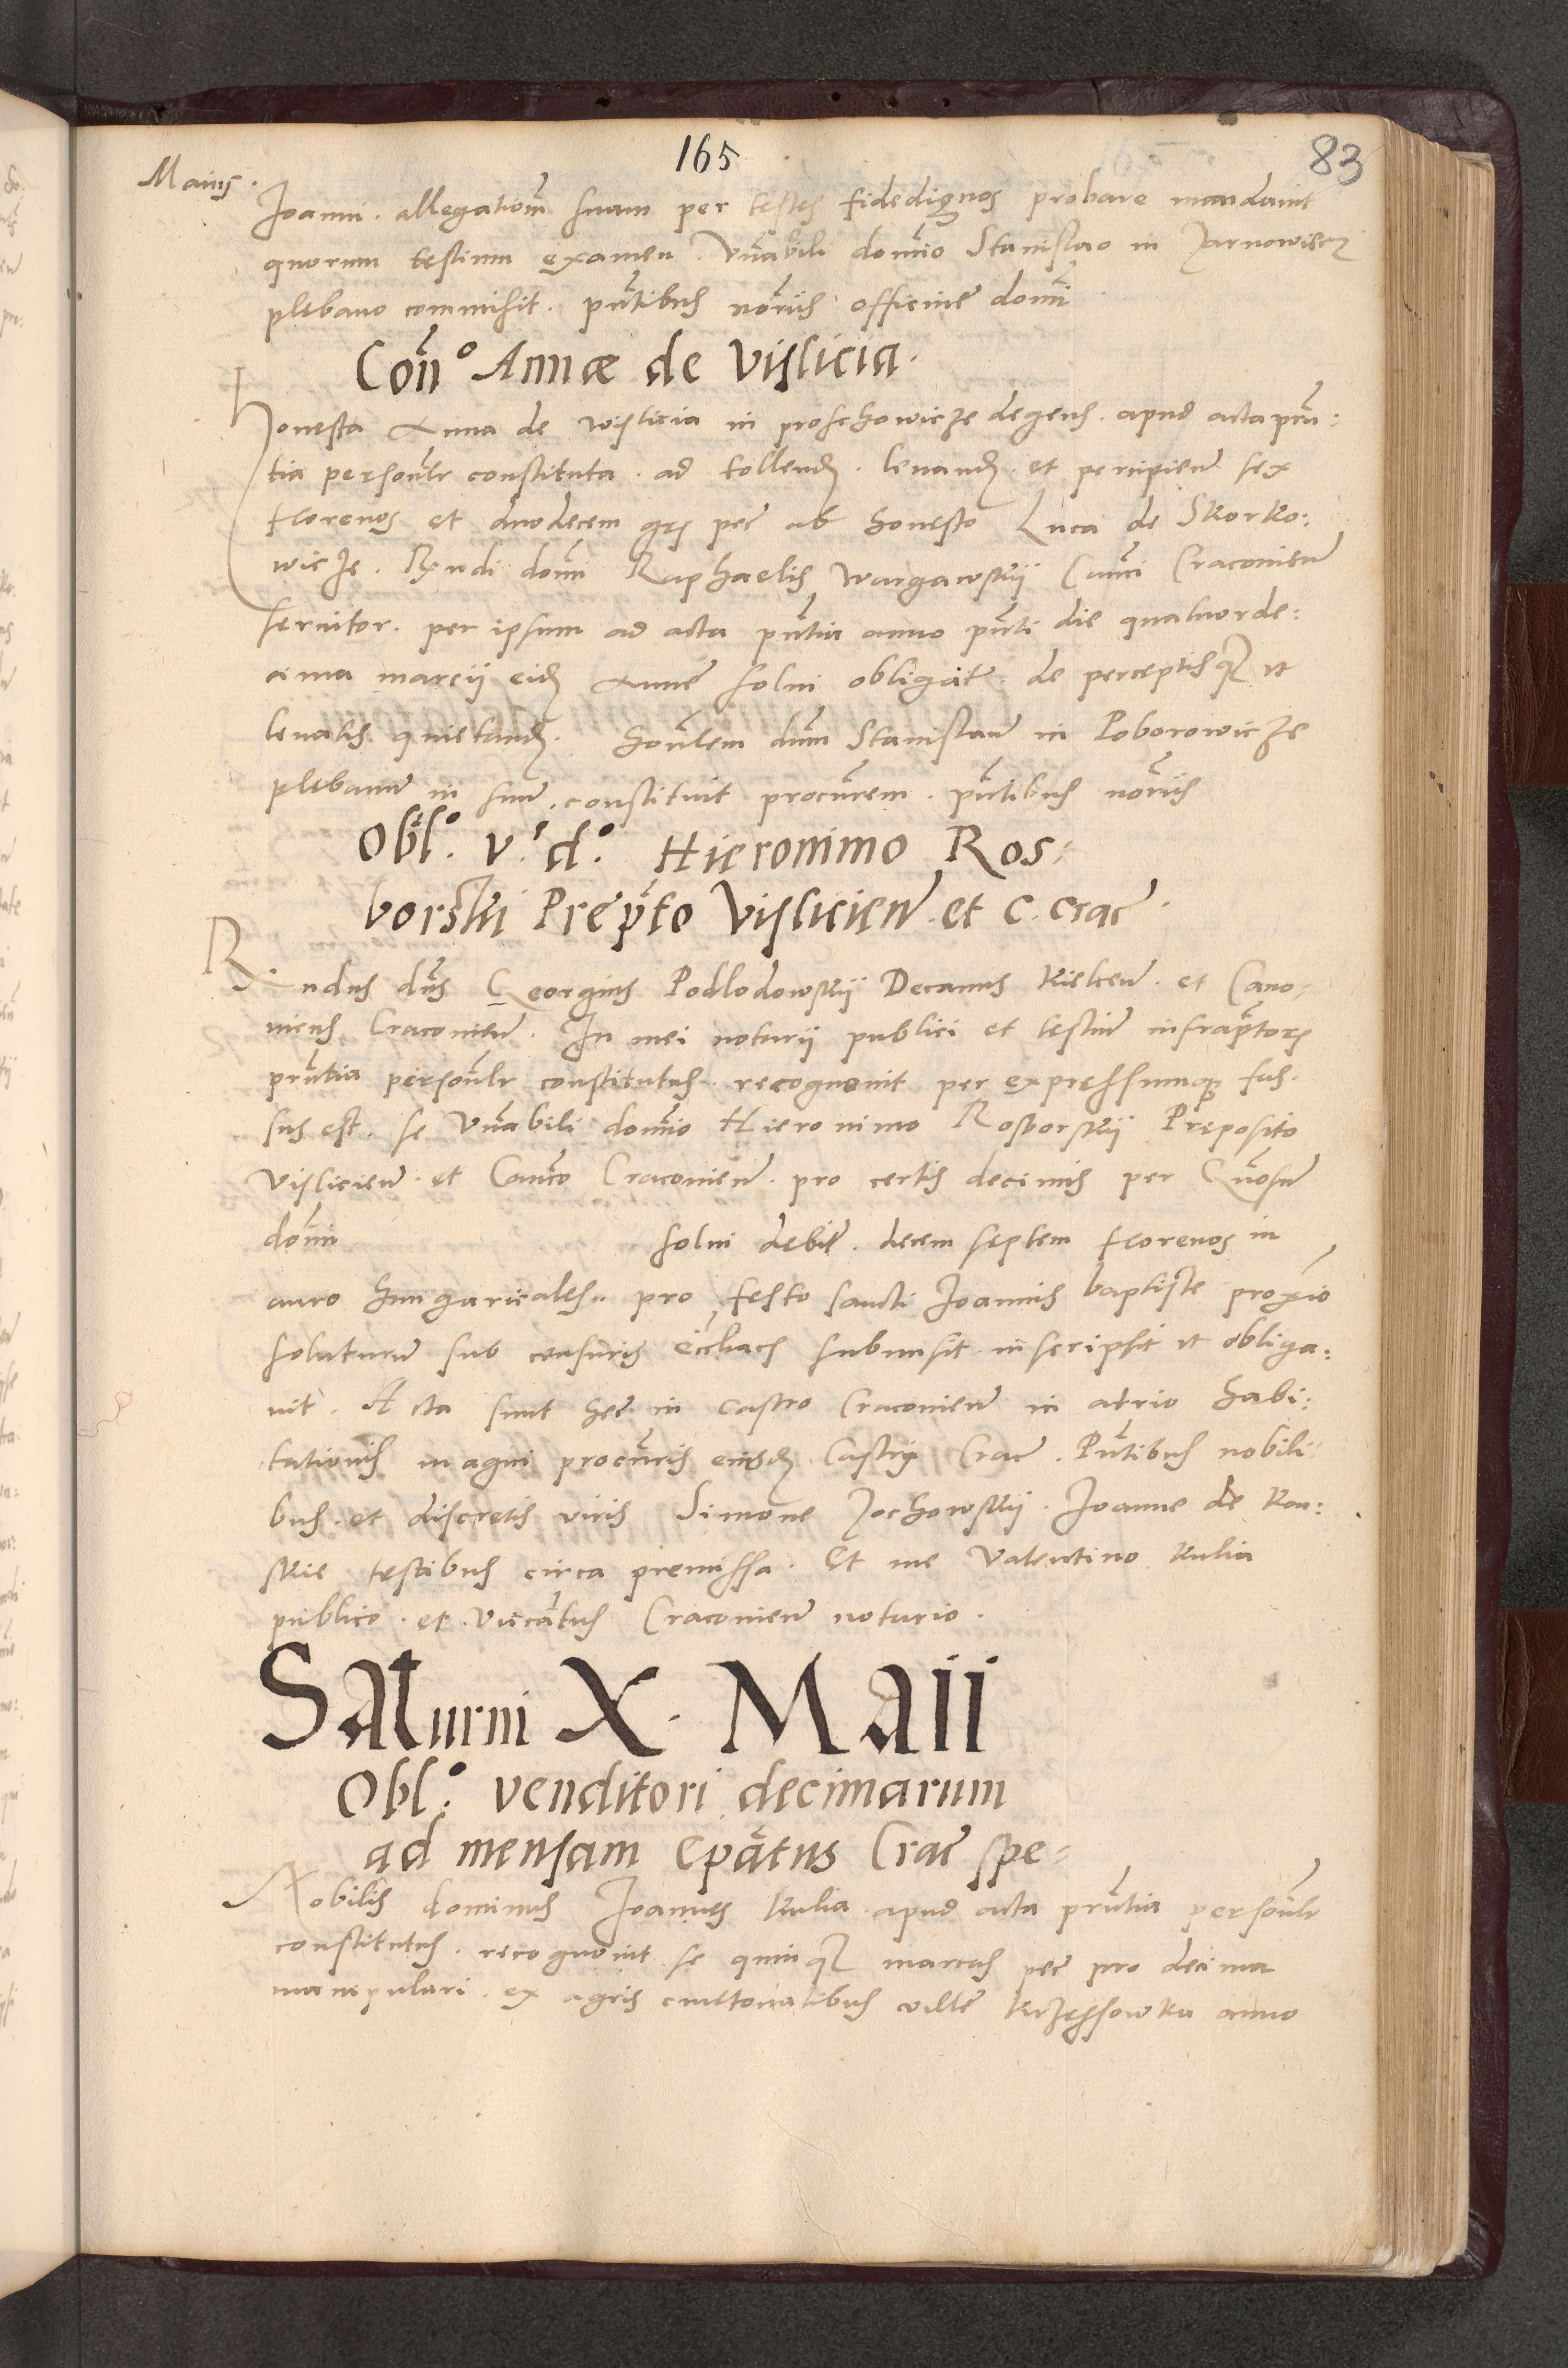 165
83
Maius.
Joanni. allegationem̄ suam per testes fidedignos probare mandauit
quorum testium examen. Vn̄abili domīo Stanislao in Jarnowiecz
plebano commisit. pn̄tibus notariis officii domī
Con̄º Annæ de Vislicia.
Honesta Anna de Wislicia in proschowicze degens. apud acta prn̄:
tia person̄lr constituta. ad tollend. leuand. et percipien̄ sex
florenos et duodecem grs pec̄ ab honesto Luca de Skorko:
wicze. Rn̄di domī Raphaelis Wargawskij Canc̄i Cracouien̄
seruitor. per ipsum ad acta pn̄tia anno pn̄ti die quatuorde:
cima marcij eid. Anne solui obligāt. de perceptisqz et
leuatis quietand. Hon̄lem dūm Stanislaū in Poborowicze
plebanū in suū. constituit procūrem. pn̄tibus notariis
Obl̄º. v. d.º Hieronimo Ros:
borski Prep̄to Vislicien̄. et C. Crac̄.
R. ndus dn̄s Georgius Podlodowskij Decanus Kielcen̄. et Cano:
nicus Cracouien̄. In mei notarij publici et testiū infrap̄tor.
prn̄tia person̄lr constitutus. recognouit per expressumqz fas:
sus est. se Vn̄abili domīo Hieronimo Rosborskij Preposito
Vislicien̄. et Canc̄o Cracouien̄. pro certis decimis per Gn̄osū
domī solui debit̄. decem septem florenos in
auro hungaricales.. pro festo sancti Joannis baptiste proxīo
soluturū sub censuris ecclīacis submisit inscripsit et obliga:
uit. Acta sunt hec̄ in Castro Cracouien̄ in atrio habi:
tationis magni procūris eiusd. Castri Crac̄. Pn̄tibus nobili
bus. et discretis viris Simone Jochowskij. Joanne de Kon:
skie testibus circa premissa. Et me Valentino Kulia
publico. et Vicāatus Cracouien̄ notario.
Saturni X. Maii
Obl.º venditori decimarum
ad mensam Epāatus Crac̄ spe:
Nobilis dominus Joannes Kulia apud acta prn̄tia person̄lr
constitutus. recognouit se quinqz marcas pec̄ pro decima
manipulari. ex agris cmetonalibus ville Krzessowka anno